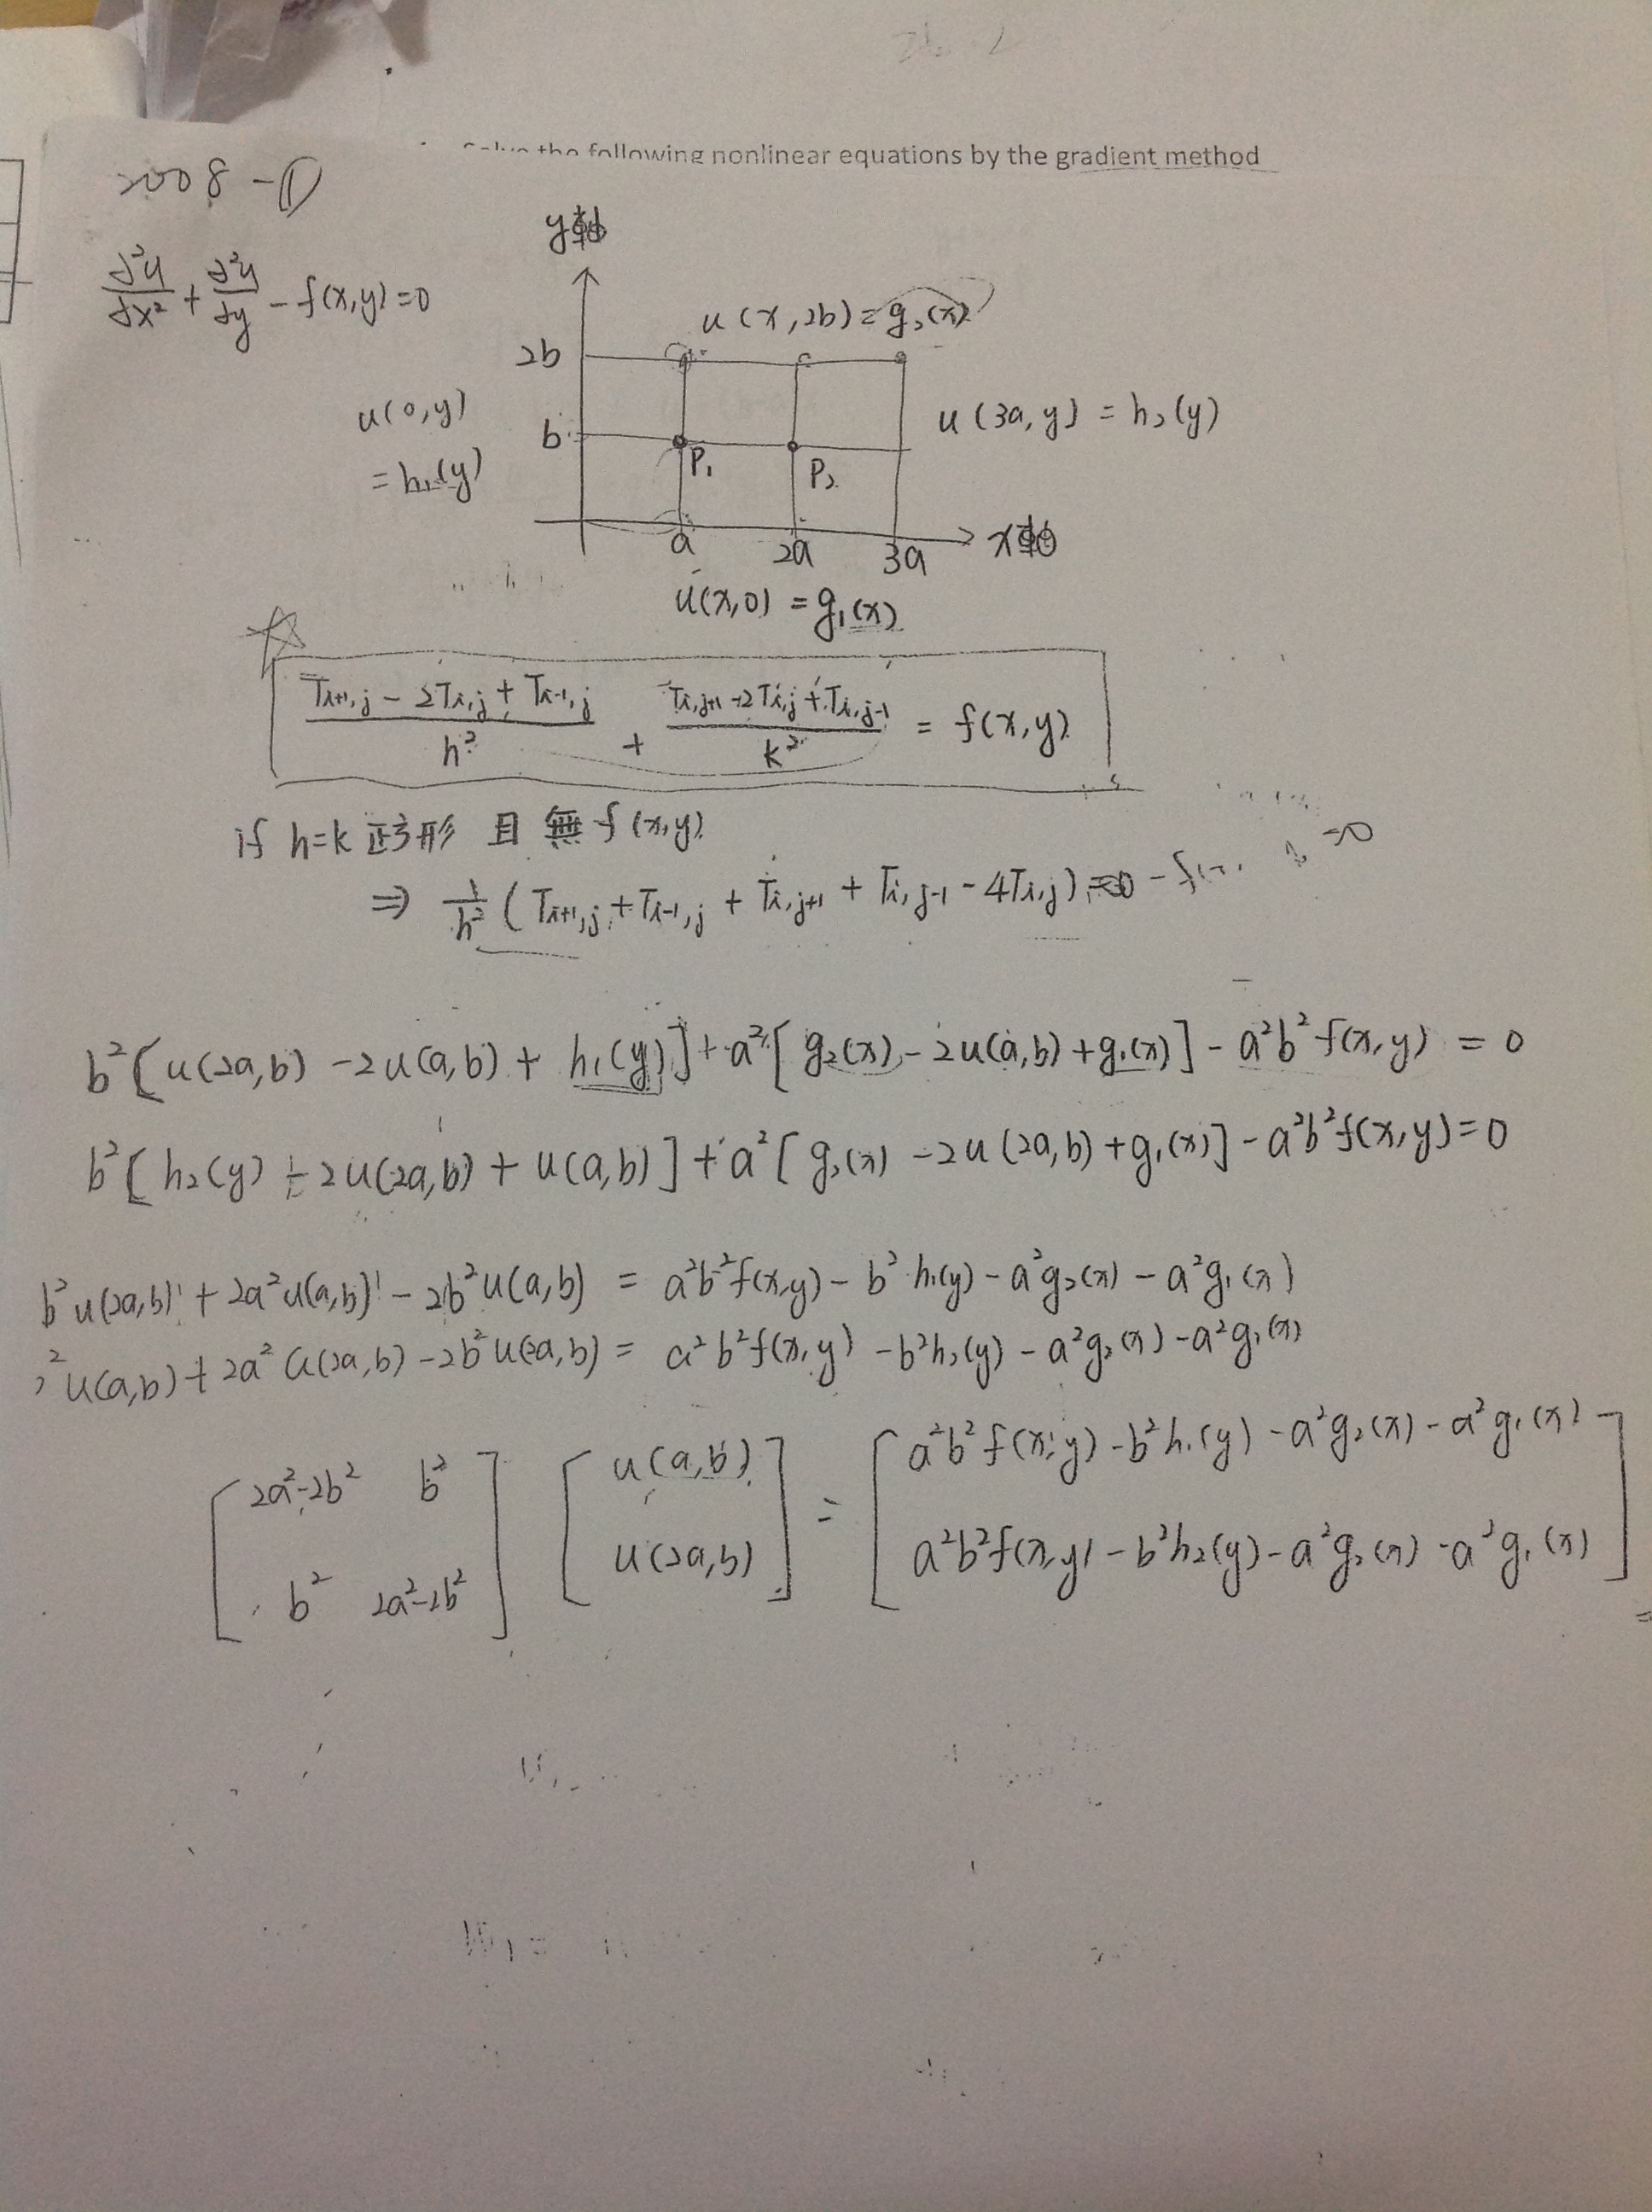 the following nonlinear equations by the gradient method
2008 - ①
y軸
∂²u/∂x² + ∂²u/∂y - f(x,y) = 0
u(x,2b) = g₂(x)
2b
u(0,y)
= h₁(y)
b
u(3a,y) = h₂(y)
P₁ P₂
a 2a 3a
x軸
u(x,0) = g₁(x)
(Ti+1,j - 2Ti,j + Ti-1,j)/h² + (Ti,j+1 - 2Ti,j + Ti,j-1)/k² = f(x,y)
if h=k 正方形 且 無 f(x,y)
⇒ 1/h² (Ti+1,j + Ti-1,j + Ti,j+1 + Ti,j-1 - 4Ti,j) = 0
b²[u(2a,b) - 2u(a,b) + h₁(y)] + a²[g₂(x) - 2u(a,b) + g₁(x)] - a²b²f(x,y) = 0
b²[h₂(y) - 2u(2a,b) + u(a,b)] + a²[g₂(x) - 2u(2a,b) + g₁(x)] - a²b²f(x,y) = 0
b²u(2a,b) + 2a²u(a,b) - 2b²u(a,b) = a²b²f(x,y) - b²h₁(y) - a²g₂(x) - a²g₁(x)
²u(a,b) + 2a²u(2a,b) - 2b²u(2a,b) = a²b²f(x,y) - b²h₂(y) - a²g₂(x) - a²g₁(x)
[2a²-2b² b²] [u(a,b)] = [a²b²f(x,y) - b²h₁(y) - a²g₂(x) - a²g₁(x)]
[b² 2a²-2b²] [u(2a,b)] [a²b²f(x,y) - b²h₂(y) - a²g₂(x) - a²g₁(x)]